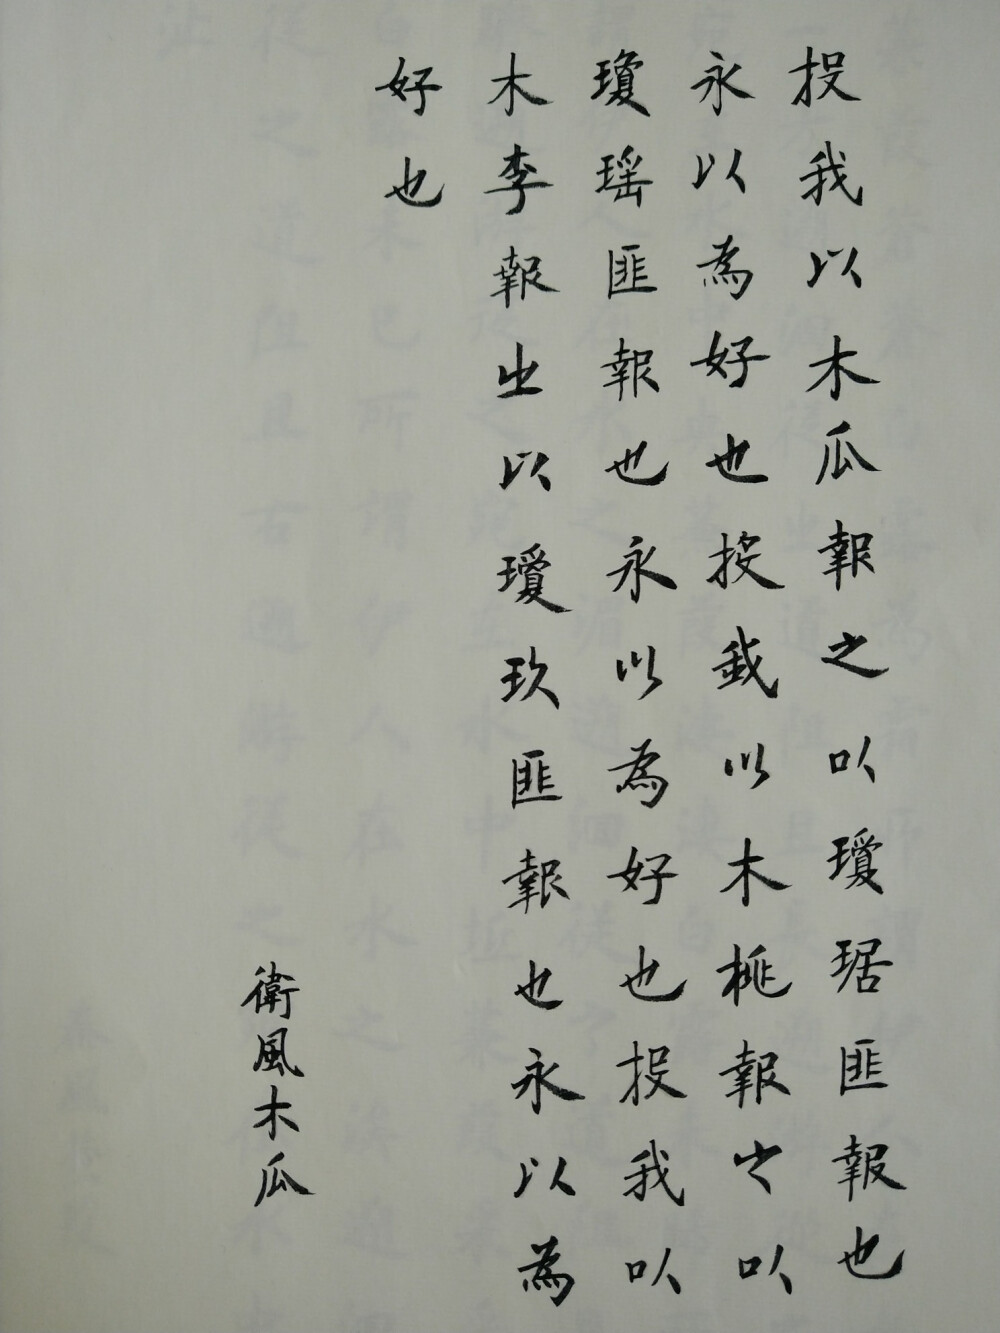 投我以木瓜報之以瓊琚匪報也
永以為好也投我以木桃報之以
瓊瑤匪報也永以為好也投我以
木李報之以瓊玖匪報也永以為
好也
衛風木瓜